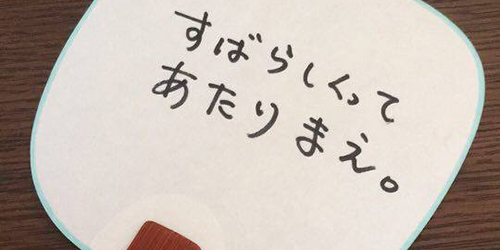 すばらしくって
あたりまえ。